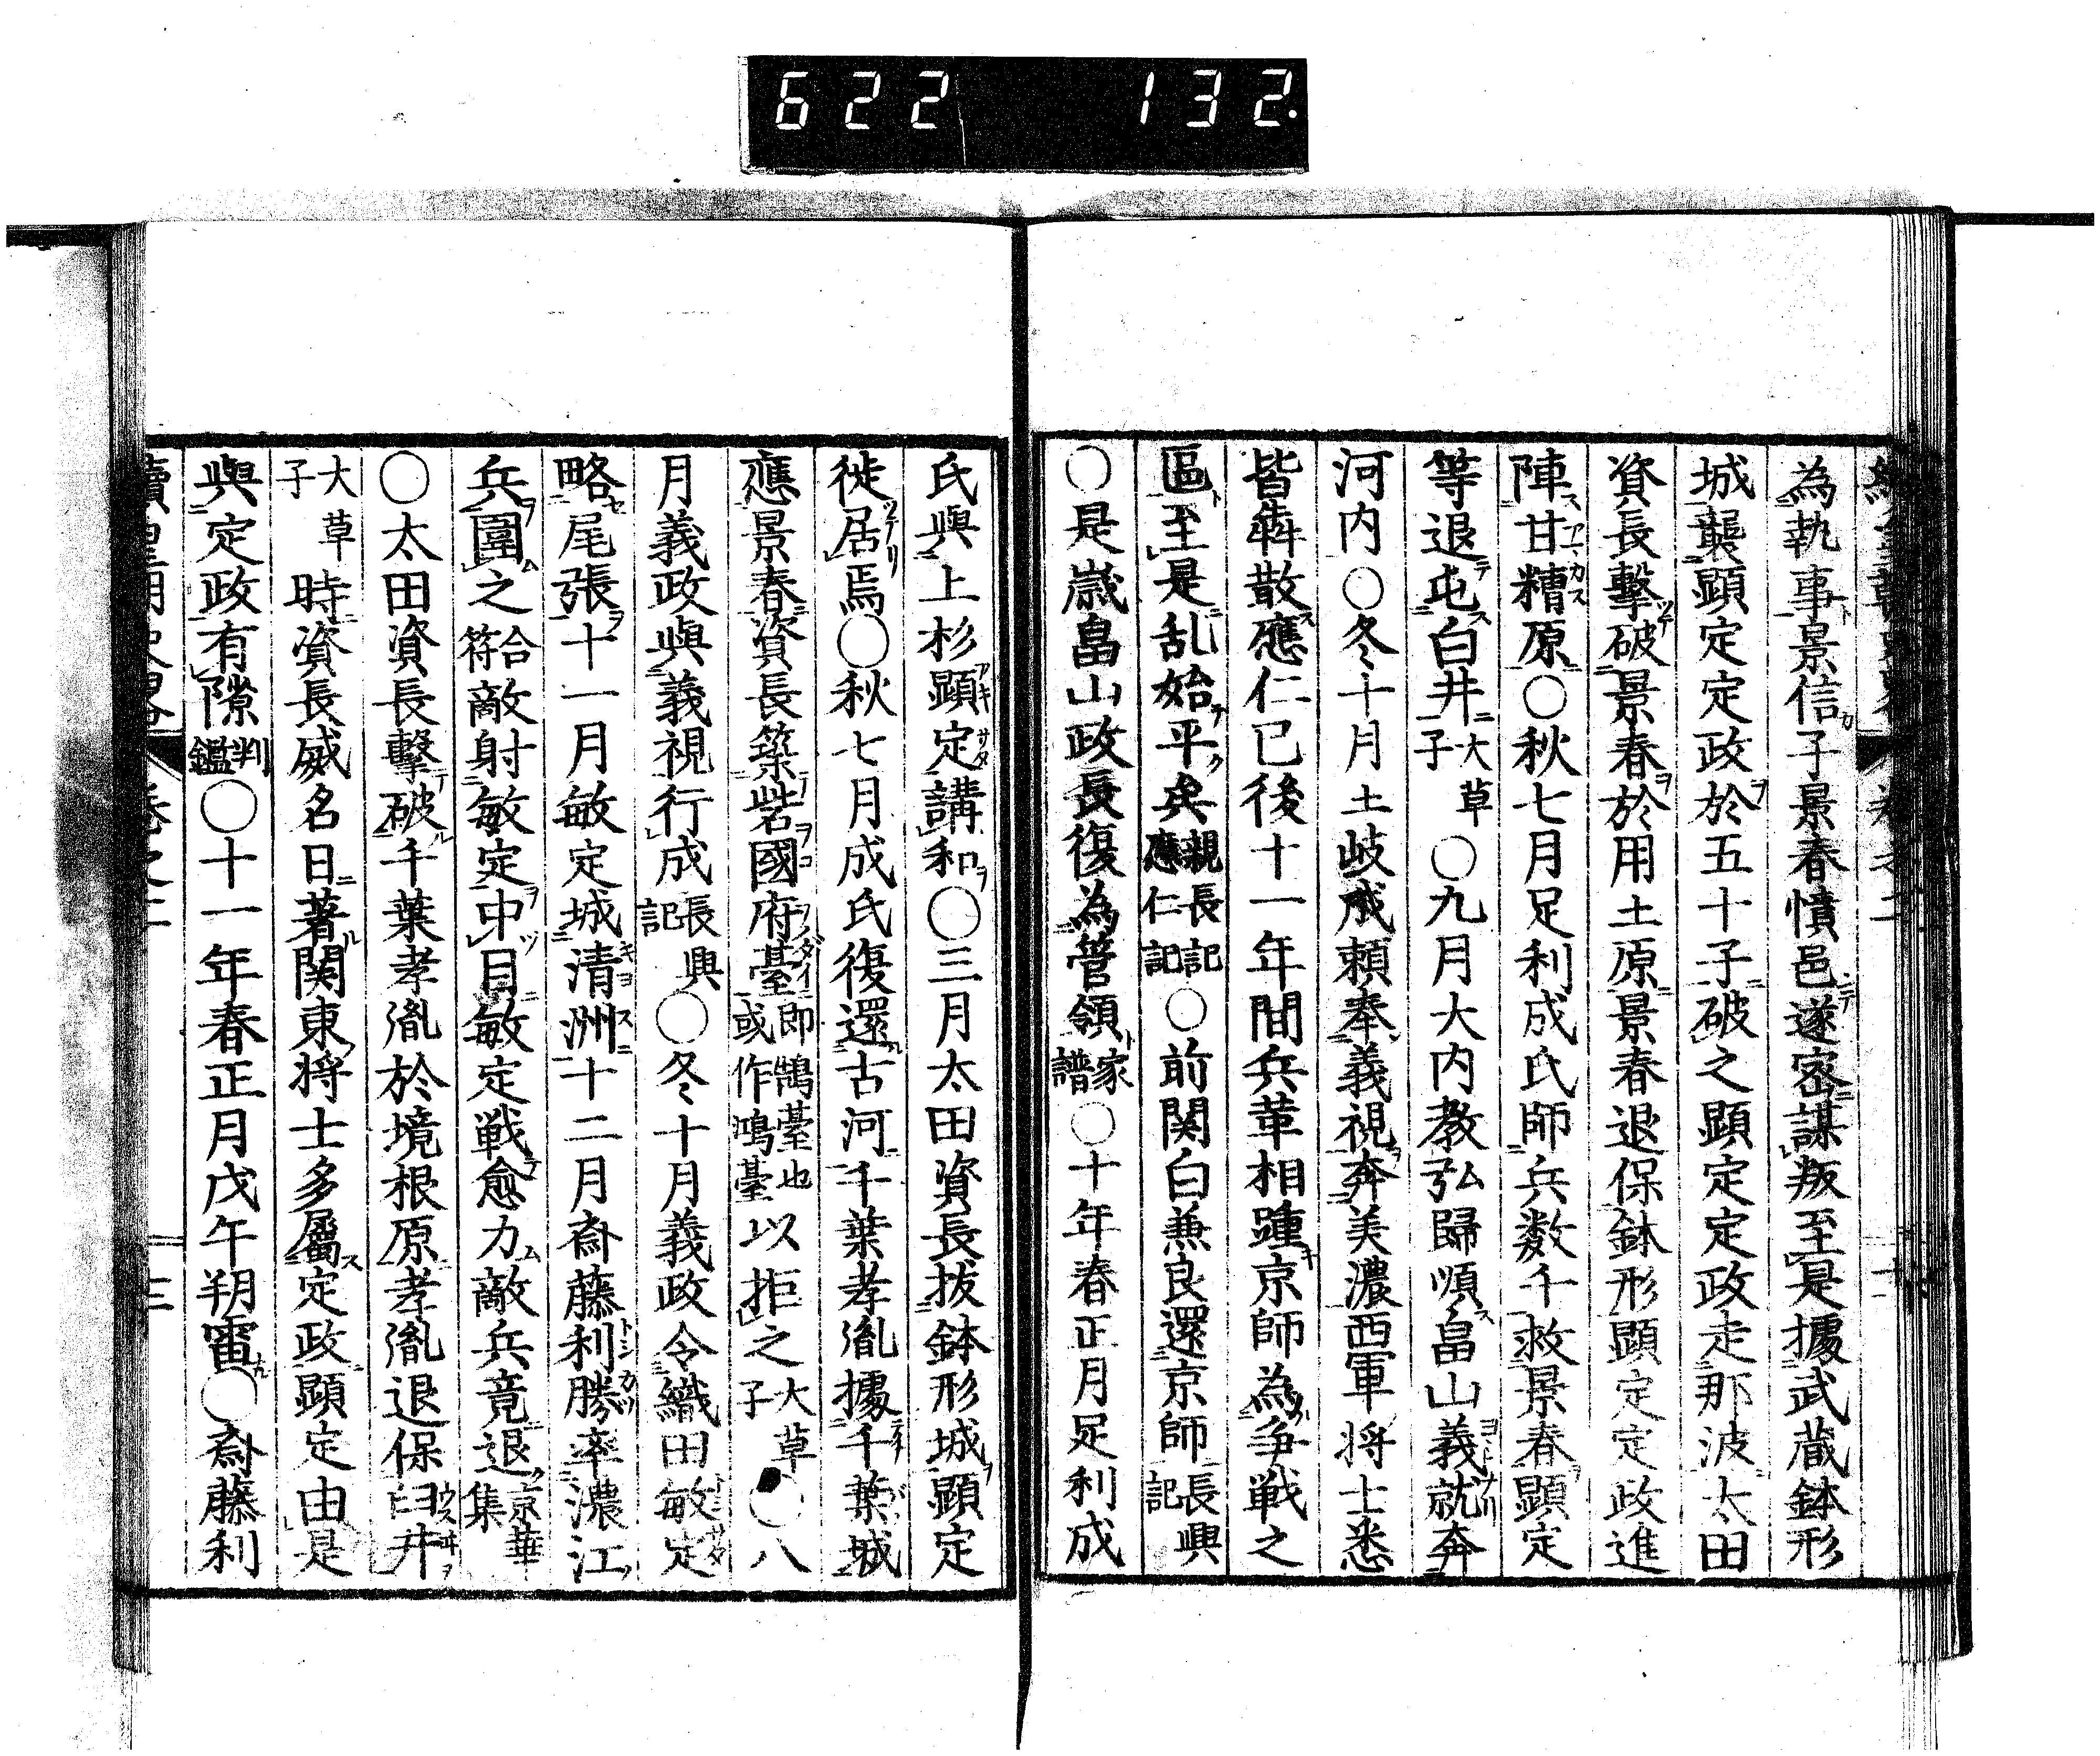 622 132.
為執事景信子景春憤邑遂密謀叛至是據武蔵鉢形
城襲顕定定政於五十子破之顕定定政走那波太田
資長擊破景春於用土原景春退保鉢形顕定定政進
陣甘糟原○秋七月足利成氏師兵数千救景春顕定
等退屯白井大草子○九月大内教弘歸順畠山義就奔
河内○冬十月土岐成頼奉義視奔美濃西軍将士悉
皆犇散應仁已後十一年間兵革相踵京師為争戦之
區至是乱始平矣親長記應仁記○前関白兼良還京師長興記
○是歳畠山政長復為管領家譜○十年春正月足利成
氏與上杉顕定講和○三月太田資長抜鉢形城顕定
徙居焉○秋七月成氏復還古河千葉孝胤據千葉城
應景春資長築砦國府臺即鵠臺也或作鴻臺以拒之大草子○八
月義政與義視行成長興記○冬十月義政令織田敏定
略尾張十一月敏定城清洲十二月斎藤利勝率濃江
兵圍之合符敵射敏定中目敏定戦愈力敵兵竟退京華集
○太田資長擊破千葉孝胤於境根原孝胤退保臼井
大草子時資長威名日著関東将士多屬定政顕定由是
與定政有隙判鑑○十一年春正月戊午朔雷○斎藤利